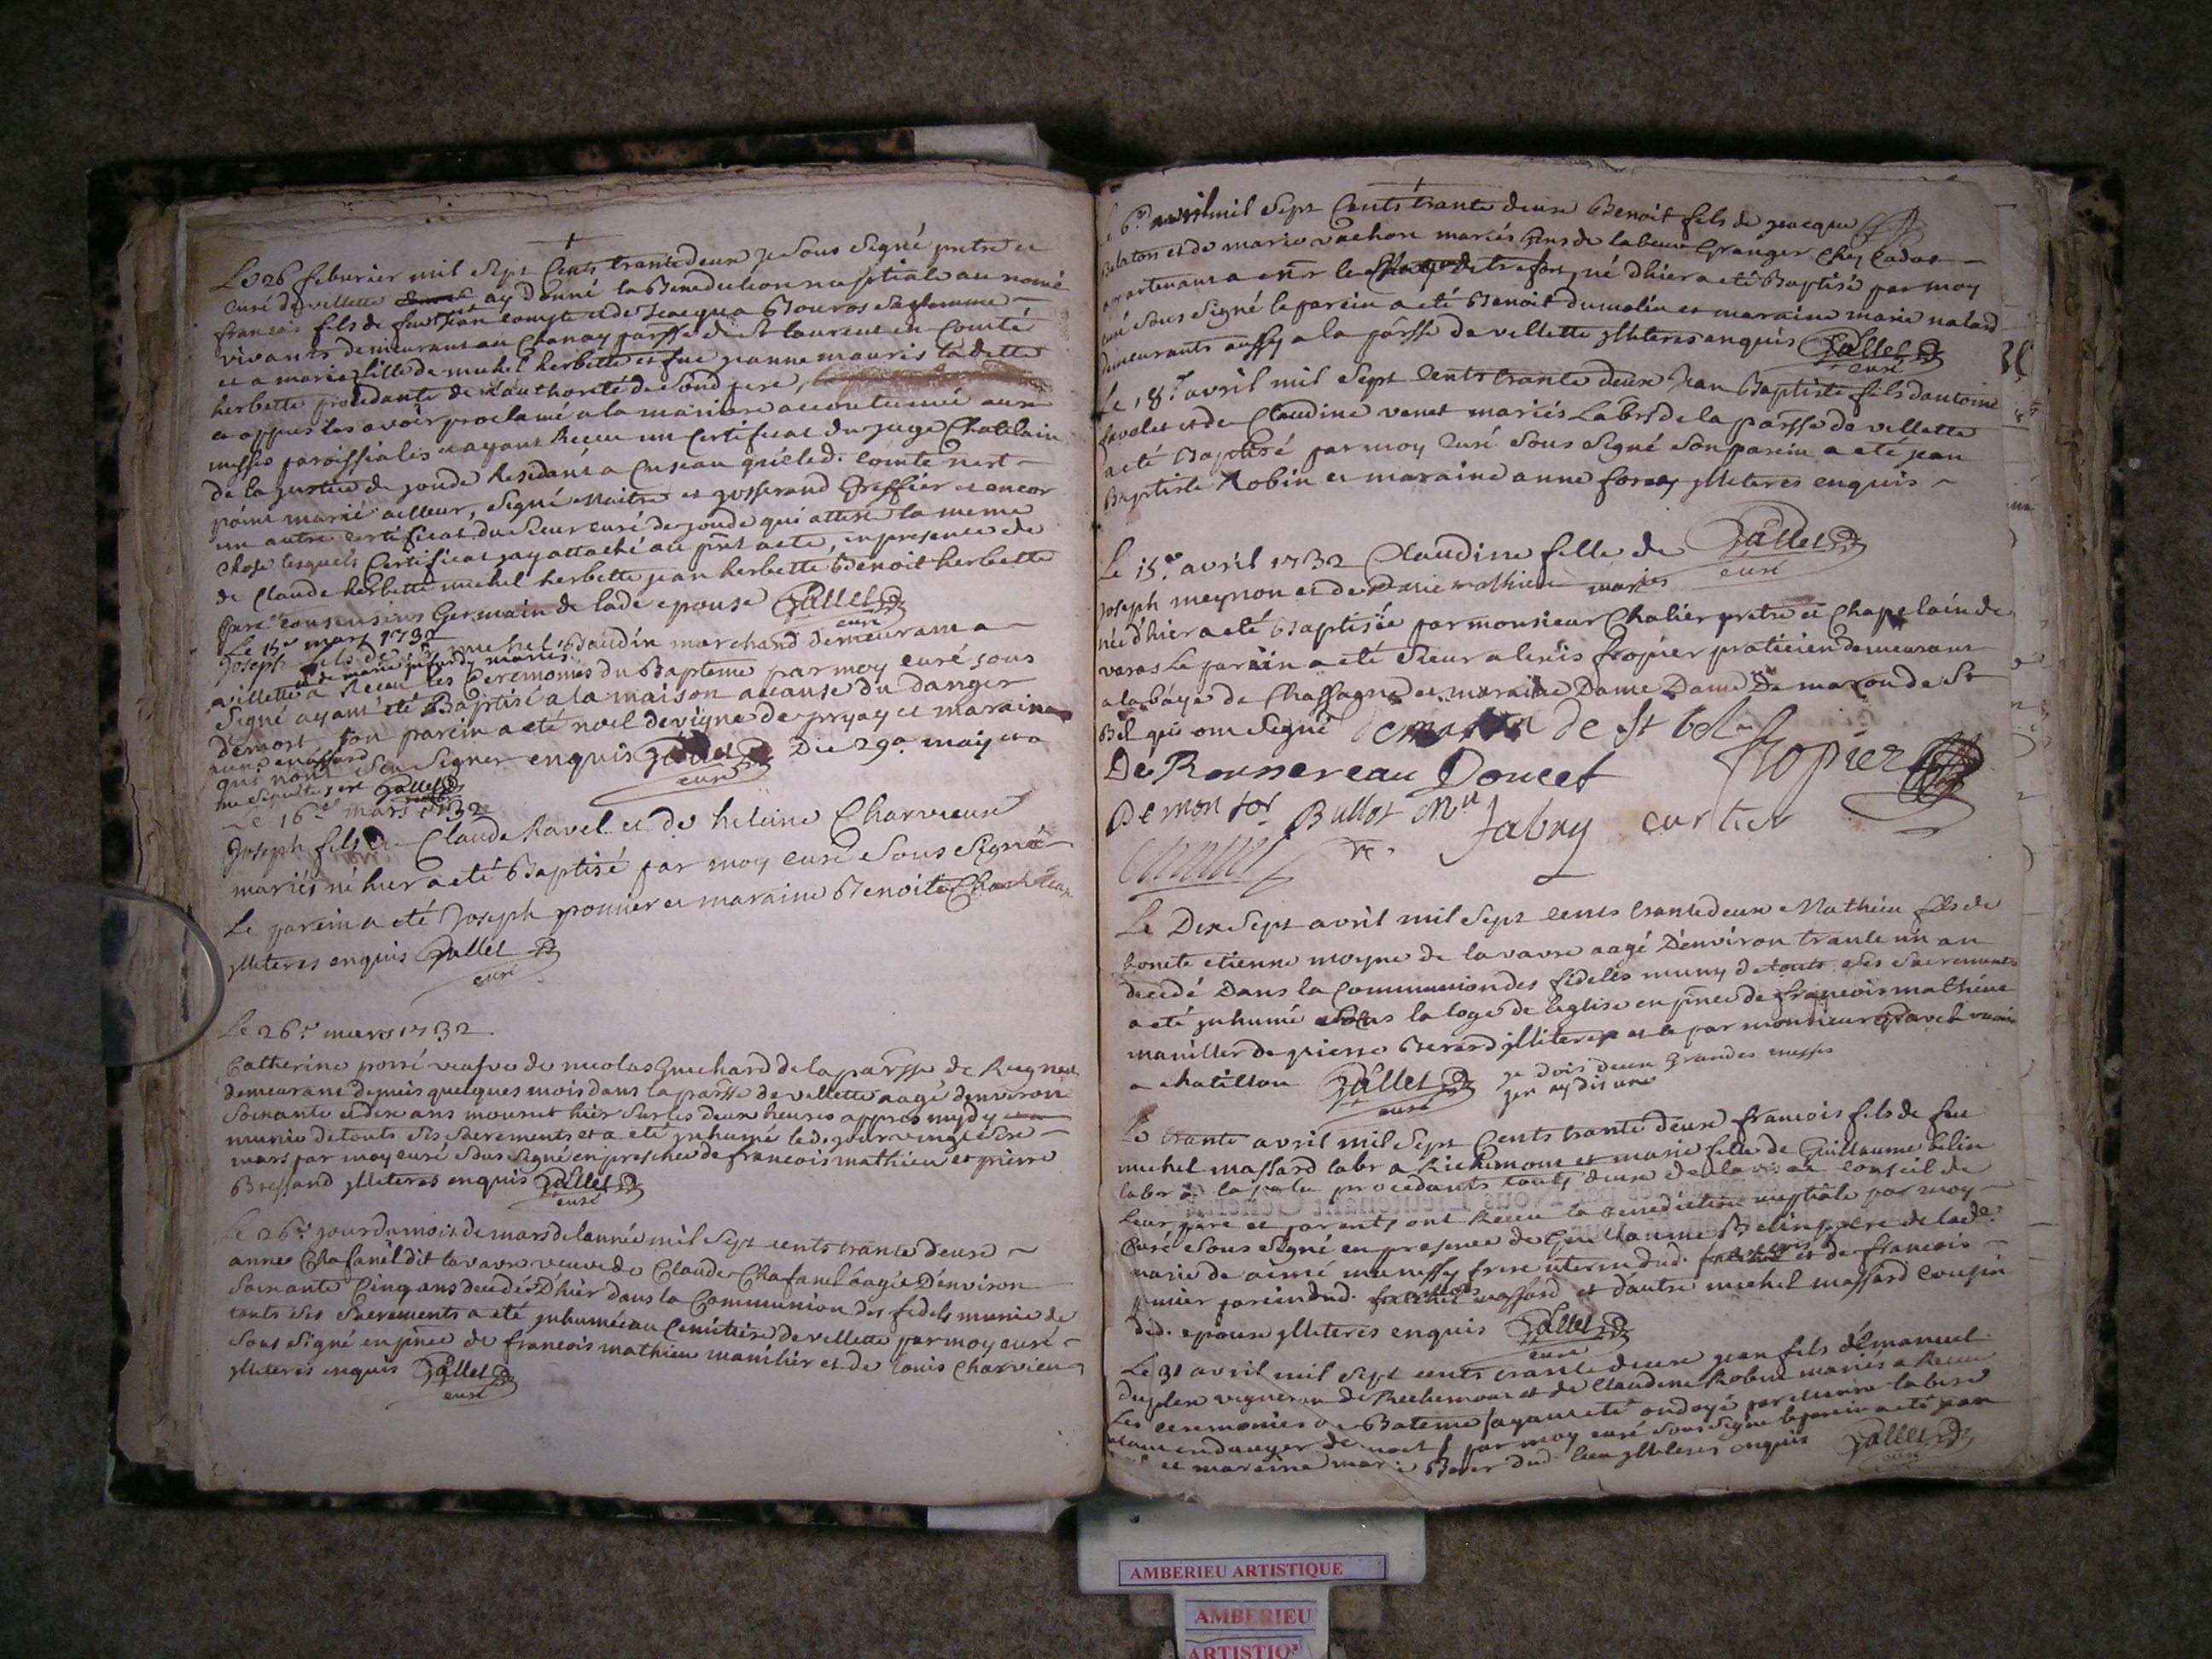 Le 26 feburier mil sept cents trante deux je sous signé pretre et
curé de villette ay donné la Benediction nuptiale au nomé
francois fils de feu Jean compte et de Jacqua Bouros sa femme
vivants demeurant au Chanay parsse de St laurent en Comté
et a marie fille de michel herbette et feue jeanne mauris ladette
herbette procedante de l'authorité de sond pere,
et appres les avoir proclamé a la maniere accoutumée aux
messes paroissiales et ayant Receu un Certificat du juge Chatelain
de la justice de joude Residant a Cuseau que led. Comte n'est
point marié ailleur, signé maitre et josserand Greffier et encor
un autre certificat du sieur curé de joude qui atteste la meme
chose lesquels Certificat jay attaché au pnt acte, en presence de
de Claude herbette michel herbette jean herbette Benoit herbette
pere cousins Germain de lade epouse Pallet
curé
Le 15e mars 1732
Joseph fils de michel Baudin marchand demeurant a
et de marie mariés
villette a Receu les Ceremonies du Bapteme par moy curé sous
signé ayant eté Baptisé a la maison a cause du danger
de mort son parein a eté noel devigne de pryay et maraine
qui n'ont sceu signer enquis Pallet Die 29a maij
curé
Pallet
Le 16e mars 1732
Joseph fils de Claude Ravel et de heleine Charvieux
mariés né hier a eté Baptisé par moy curé sous signé
Le parein a eté Joseph ponnier et maraine Benoite
jlliteres enquis Pallet
curé
Le 26e mars 1732
Catherine porré veufve de nicolas Guichard de la parsse de
demeurant depuis quelques mois dans la parsse de villette aagé denviron
soixante et dix ans mourut hier sur les deux heures appres mydy
munie de touts ses sacrements et a eté jnhumé led. jour vingt sixe
mars par moy curé sous signé en presence de francois mathieu et pierre
Bressand jlliteres enquis Pallet
curé
Le 26e jour du mois de mars de lannée mil sept cents trante deux
anne Chafanel dit lavavre veuve de Claude Chafanel aagée Denviron
soixante Cinq ans decedée D'hier dans la Communion des fidels munie de
touts ses sacrements a eté jnhumée au Cemitiere de villette par moy curé
sous signé en pnce de francois mathieu manilier et de louis Charvieux
jlliteres enquis Pallet
curé
Le 6e avril mil sept Cents trante deux Benoit fils de jacque
Belaton et de marie vachon mariés gens de labeur Granger Chez Cadot
appartenant a mr le de trefort, né d'hier a eté Baptisé par moy
curé sous signé le parein a eté Benoit dumolin et maraine marie nalard
demeurants aussy a la parsse de villette jlliteres enquis Pallet
curé
Le 18e avril mil sept Cents trante deux Jean Baptiste fils d'antoine
favolet et de Claudine venet mariés Labrs de la parsse de villette
a eté Baptisé par moy Curé sous signé son parein a eté jean
Baptiste Robin et maraine anne jlliteres enquis
Pallet
curé
Le 15e avril 1732 Claudine fille de
Joseph meynon et de marie mathieu mariés
née d'hier a eté Baptisée par monsieur Chalier pretre et Chapelain de
varas Le parain a eté sieur alexis fropier praticien demeurant
a labaye de Chassagne et maraine Dame Dame De maron de St
Bel qui ont signé de maron de St bel
De Rousereau Doucet fropier
De mon for Bullot Mre Jabry cartier
Le Dix sept avril mil sept cents trante deux Mathieu fils de
honete etienne moyne de la vavre aagé D'environ trante un an
decedé Dans la Communion des fideles muny de touts ses sacrements
a eté jnhumé sous la loge de leglise en pnce de francois mathieu
maniller de pierre Berard jlliteres et a par monsieur Gravet vicaire
a chatillon Pallet je dois deux Grandes messes
curé jen ay dis une
Le trante avril mil sept Cents trante deux francois fils de feu
michel massard labr a Richemont et marie fille de Guillaume belin
labr a procedants touts deux de lavis et conseil de
leur pere et parents ont Receu la benediction nuptiale par moy
Curé sous signé en presence de Guillaume Belin pere de lade.
marie de aimé munessy frere uterin dud. francois et de francois
parein dud. francois massard et d'autre michel massard cousin
dud. epoux jlliteres enquis Pallet
curé
Le 31 avril mil sept cents trante deux jean fils d'Emanuel
duplex vigneron de Richemont et de Claudine Robin mariés a Receu
Les ceremonies de Bateme ayant eté ondoyé par
etant en danger de mort par moy curé sous signé le parein a eté jean
et mareine marie Boyer dud. lieu jlliteres enquis Pallet
curé
AMBERIEU ARTISTIQUE
AMBERIEU
ARTISTIQ